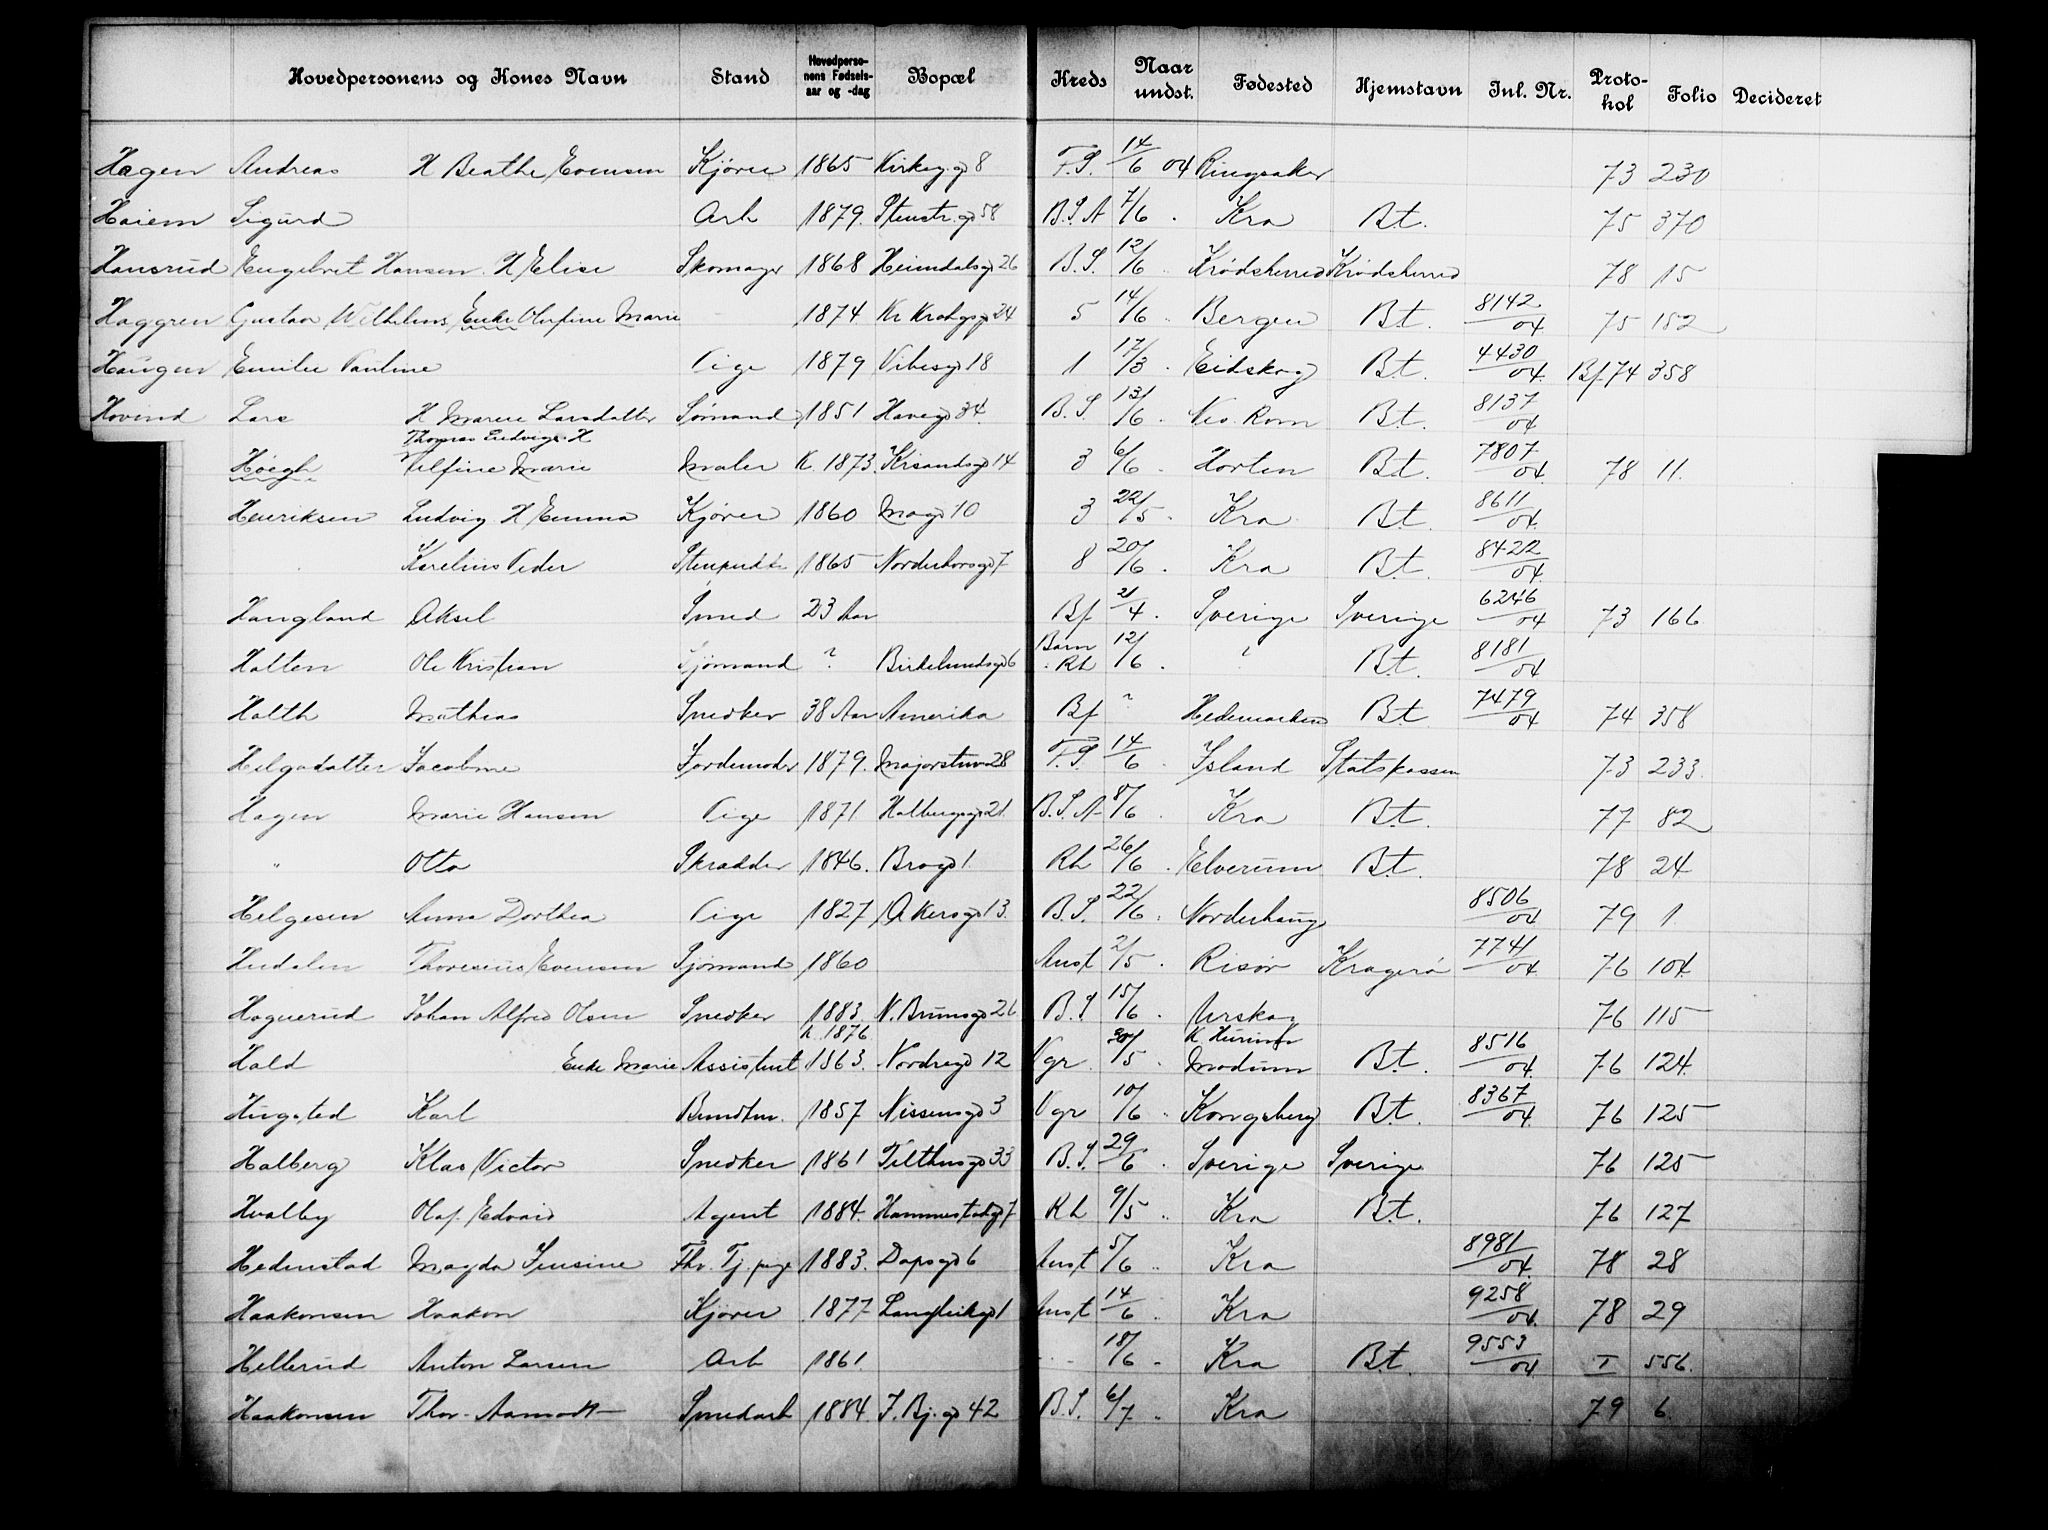 Hovedpersonens og Kones Navn Stand Hovedpersonens Fødselsaar og -dag Bopæl Kreds Naar undst. Fødested Hjemstavn Inl. Nr. Protokol Folio Decideret
Hagen Andreas H Beathe Evensen Kjører 1865 Kirkeg. gd 8 F.S. 14/6 04 Ringsaker 73 230
Haiem Sigurd Arb 1879. Stenstr. gd 58 B.S.A 7/6 . Kra Bt. 75 370
Hansrud Engelbret Hansen. H Elise Skomager 1868 Heimdalsgd 26 B.S. 12/6 . Krødsherred Krødsherred 78 15
Haggren Gustav Wilhelms Enke Olufine Marie 1874 Kr Krohgsgd 24 5 14/6 . Bergen Bt. 8142/04 75 152
Haugen Emilie Pauline Pige 1879 Vibesgd 18 1 17/3 . Eidskog Bt. 4430/04. Bf 74 358
Hovind Lars H Maren Larsdatter Sømand 1851 Havegd 34. B.S. 13/6 . Neo. Rom Bt. 8137/04
Thomas Ludvigs H
Høegh Delfine Marie Maler K. 1873. Krsandsgd 14 3 6/6 . Horten Bt. 7807/04. 78 11.
Henriksen Ludvig H Emma Kjører 1860 Maogd 10 3 22/5 . Kra Bt. 8611/04.
Karelius Peder 1865 Norderhovsgd 7 8 20/6 . Kra Bt. 8422/04.
Haugland Aksel Smed 23 Aar Bf 21/4 . Sverige Sverige 6246/04 73 166
Halten Ole Kristian Sjömand ? Birkelundsgd 6 Barn Rh 12/6 . ? Bt. 8181/04
Halth Mathias Snedker 38 Aar Amerika Bf ? Hedemarken Bt 7479/04 74 358
Helgadatter Jacobine Jordemoder 1879. Majorstuv 28 F.S. 14/6 . Island Statskassen 73 233.
Hagen Marie Hansen Pige 1871 Halbergsgd 21. B.S.A 8/6 . Kra Bt. 77 82
" Otto Skrædder 1846. Brogd 1. Rh 26/6 . Elverum Bt. 78 24
Helgesen Anna Dorthea Pige 1827 Akersgd 13. B.S. 22/6 . Norderhaug 8506/04 79 1.
Hudalen Thoresius Evensen Sjömand 1860 Anst 2/5 . Risør Kragerø 7741/04 76 104.
Haguerud Johan Alfred Olsen Snedker 1883. N. Brunsgd 26 B.S 15/6 . Urskog 76 115
Hald Enke Marie Assistent K. 1876 1863. Nordregd 12 Vgr. 30/5 . K Hurum Modum Bt. 8516/04. 76 124.
Hugsted Karl Bundtm. 1857 Nissensgd 3 Vgr 10/6 . Kongsberg Bt. 8367/04. 76 125
Halberg Klas Victor Snedker 1861 Tilthusgd 33 B.S. 29/6 . Sverige Sverige 76 125
Hvalby Olaf Edvard Agent 1884. Hammerstadgd 7 Rh 9/5 .. Kra Bt. 76 127
Hedenstad Magda Jensine Fhv. Tj. pige 1883. Dapsgd 6 Anst 5/6 .. Kra 8981/04. 78 28
Haakonsen Haakon Kjører 1877 Langleikgd 1 Anst 14/6 .. Kra 9258/04. 78 29
Hellerud Anton Larsen Arb 1861 18/6 . Kra Bt. 9553/04 I 556.
Haakonsen Thor Aamodt Smedarb 1884 J. Bj. gd 42 B.S. 6/7 .. Kra 79 6.